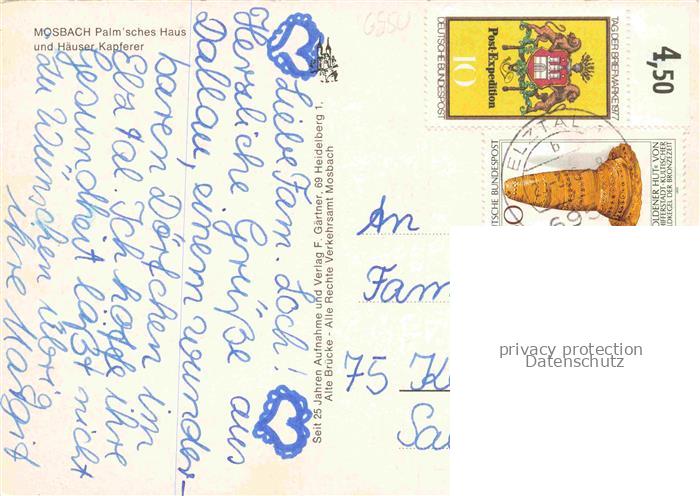 MOSBACH Palm'sches Haus
und Häuser Kapferer
Liebe Fam. Loch!
Herzliche Grüße aus
Dallau, einem wunder-
baren Dörfchen im
Elztal. Ich hoffe ihre
Gesundheit läßt nicht
zu Wünschen übrig
ihre Margrit
Seit 25 Jahren Aufnahme und Verlag F. Gärtner, 69 Heidelberg 1,
Alte Brücke - Alle Rechte Verkehrsamt Mosbach
6950
TAG DER BRIEFMARKE 1977
Post-Expedition
10
DEUTSCHE BUNDESPOST
4,50
ELZTAL
b
DEUTSCHE BUNDESPOST
GOLDENER HUT« VON
SCHIFFERSTADT-KULTISCHER
BRONZEZEIT
An
Fam
75 K
privacy protection
Datenschutz